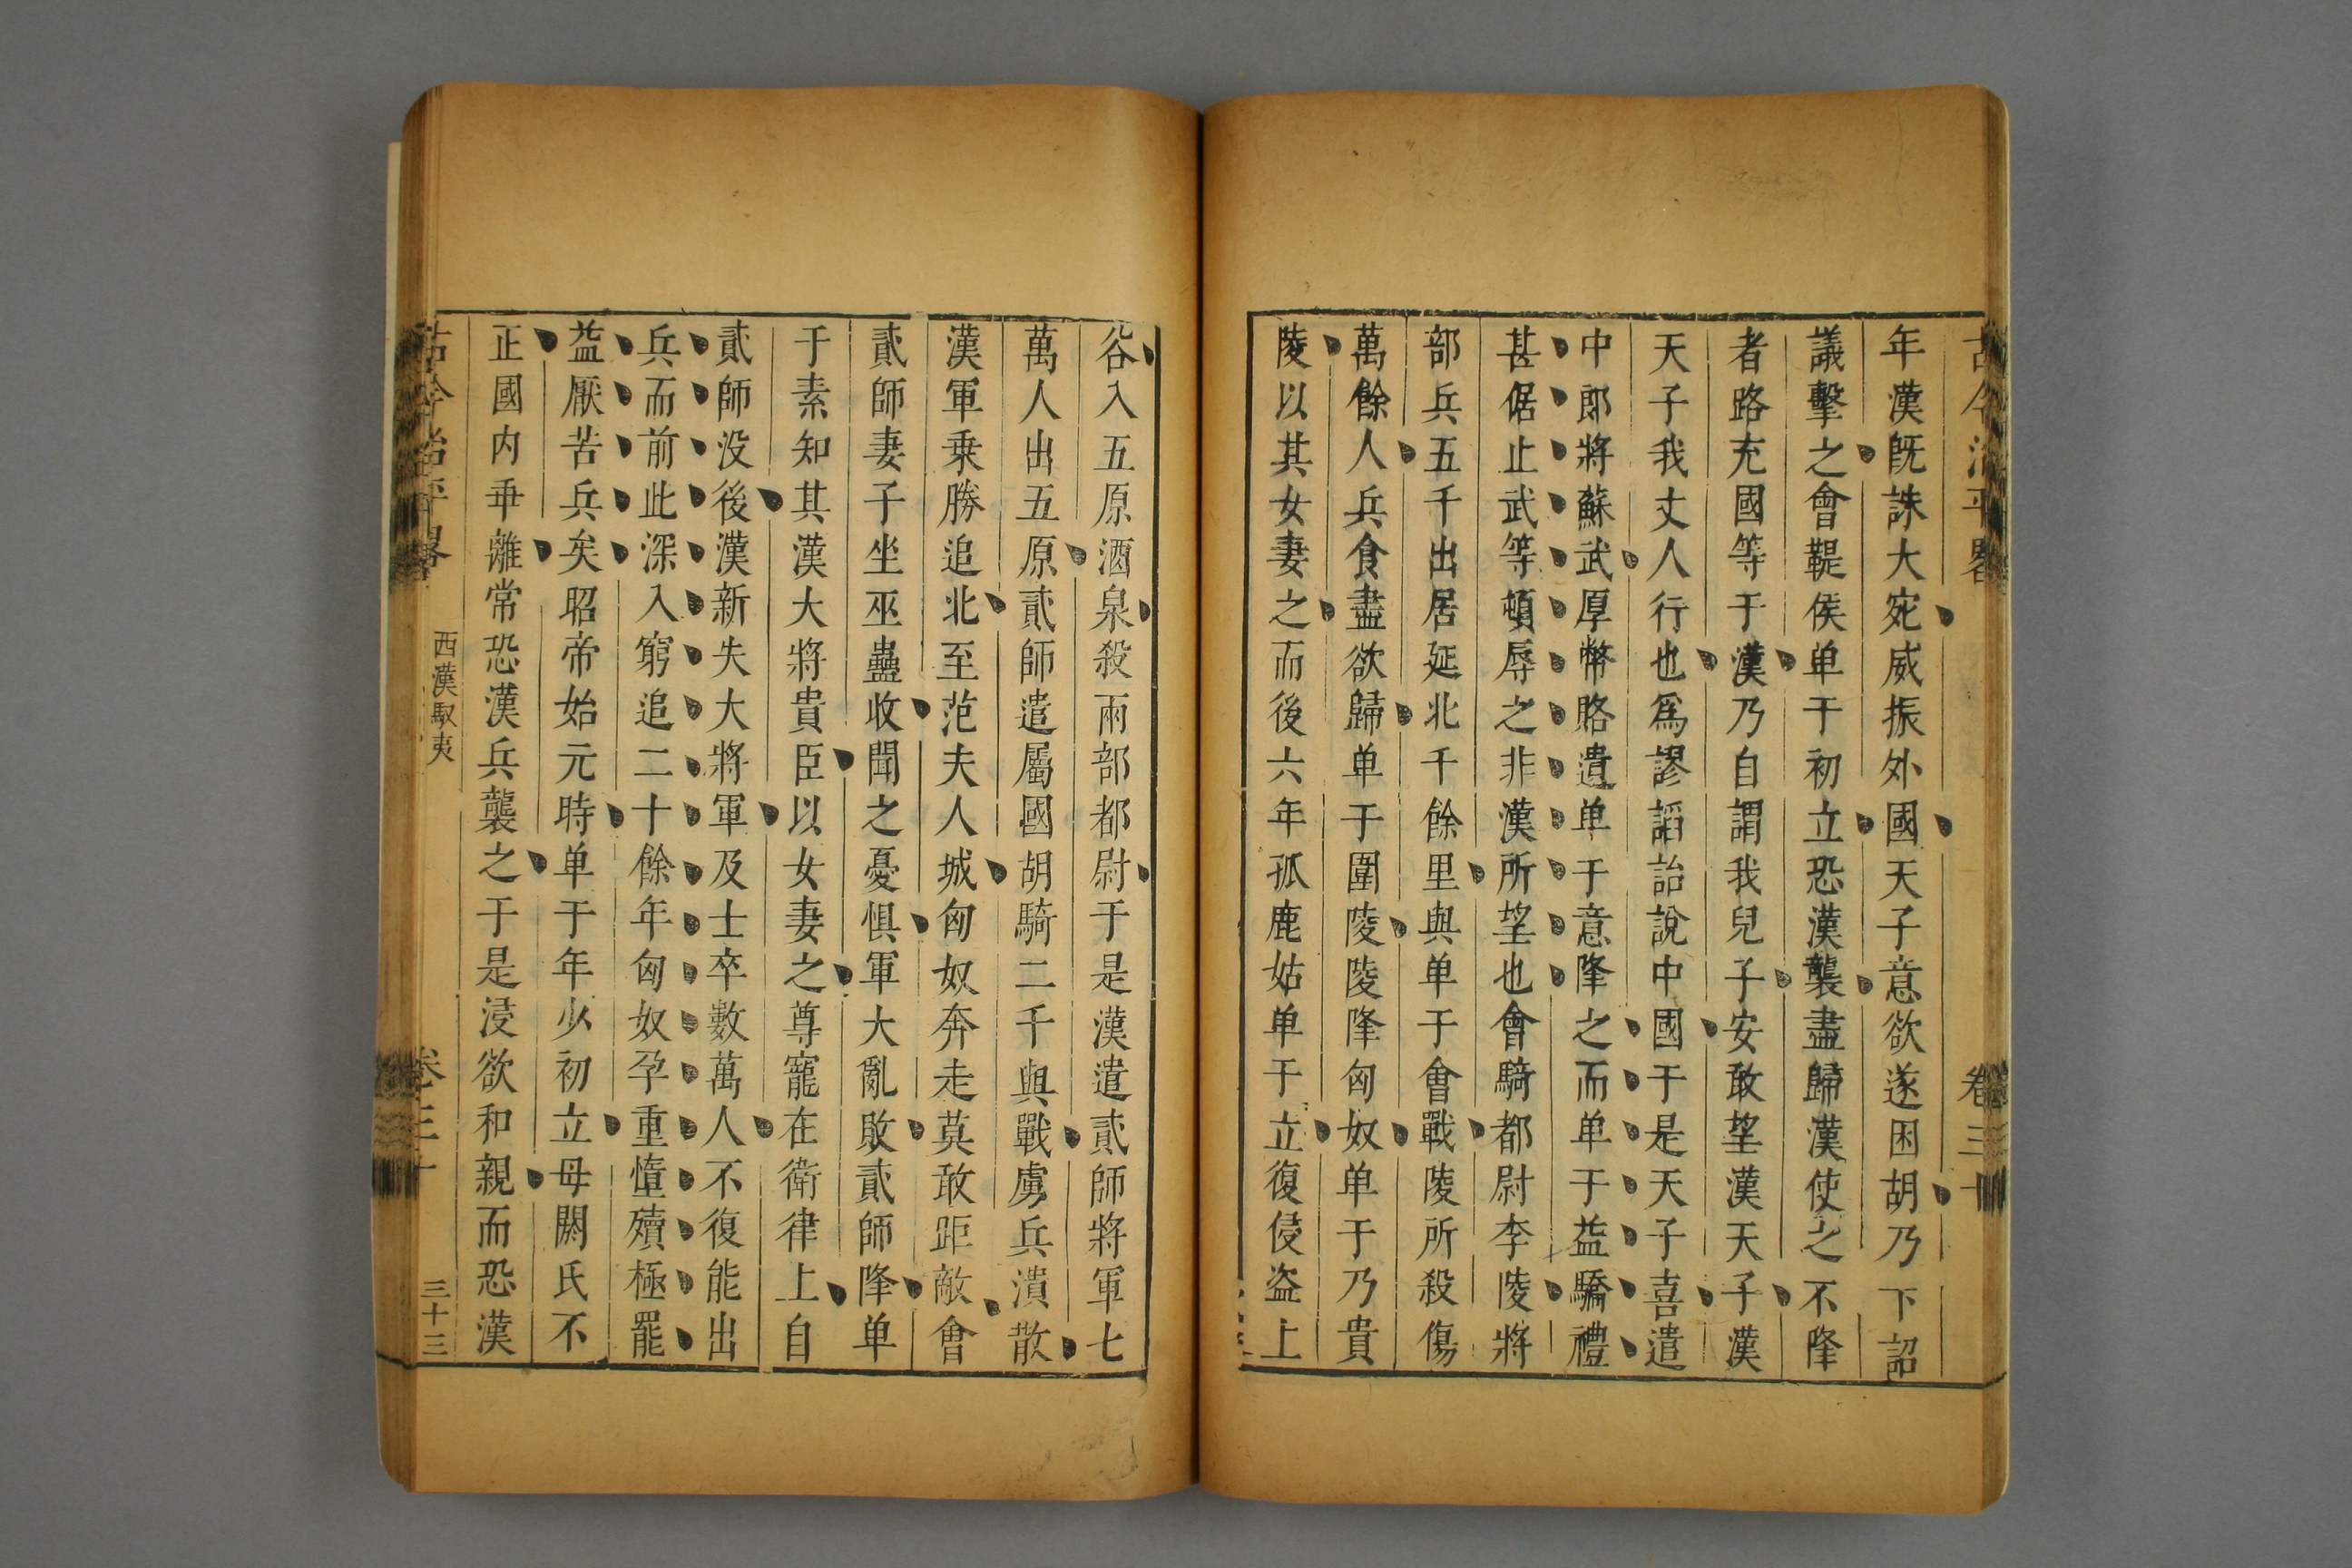 古今治平畧 卷三十
年漢既誅大宛威振外國天子意欲遂困胡乃下詔
議擊之會鞮侯单于初立恐漢襲盡歸漢使之不降
者路充國等于漢乃自謂我兒子安敢望漢天子漢
天子我丈人行也爲謬謟詒說中國于是天子喜遣
中郎將蘇武厚幣賂遺单于意降之而单于益驕禮
甚倨止武等頓辱之非漢所望也會騎都尉李陵將
部兵五千出居延北千餘里與单于會戰陵所殺傷
萬餘人兵食盡欲歸单于圍陵陵降匈奴单于乃貴
陵以其女妻之而後六年孤鹿姑单于立復侵盗上
谷入五原酒泉殺兩部都尉于是漢遣貳師將軍七
萬人出五原貳師遣屬國胡騎二千與戰虜兵潰散
漢軍乗勝追北至范夫人城匈奴奔走莫敢距敵會
貳師妻子坐巫蠱收聞之憂惧軍大亂敗貳師降单
于素知其漢大將貴臣以女妻之尊寵在衛律上自
貳師没後漢新失大將軍及士卒數萬人不復能出
兵而前此深入窮追二十餘年匈奴孕重墮殰極罷
益厭苦兵矣昭帝始元時单于年少初立母閼氏不
正國内乖離常恐漢兵襲之于是浸欲和親而恐漢
古今治平畧 西漢馭夷 卷三十 三十三